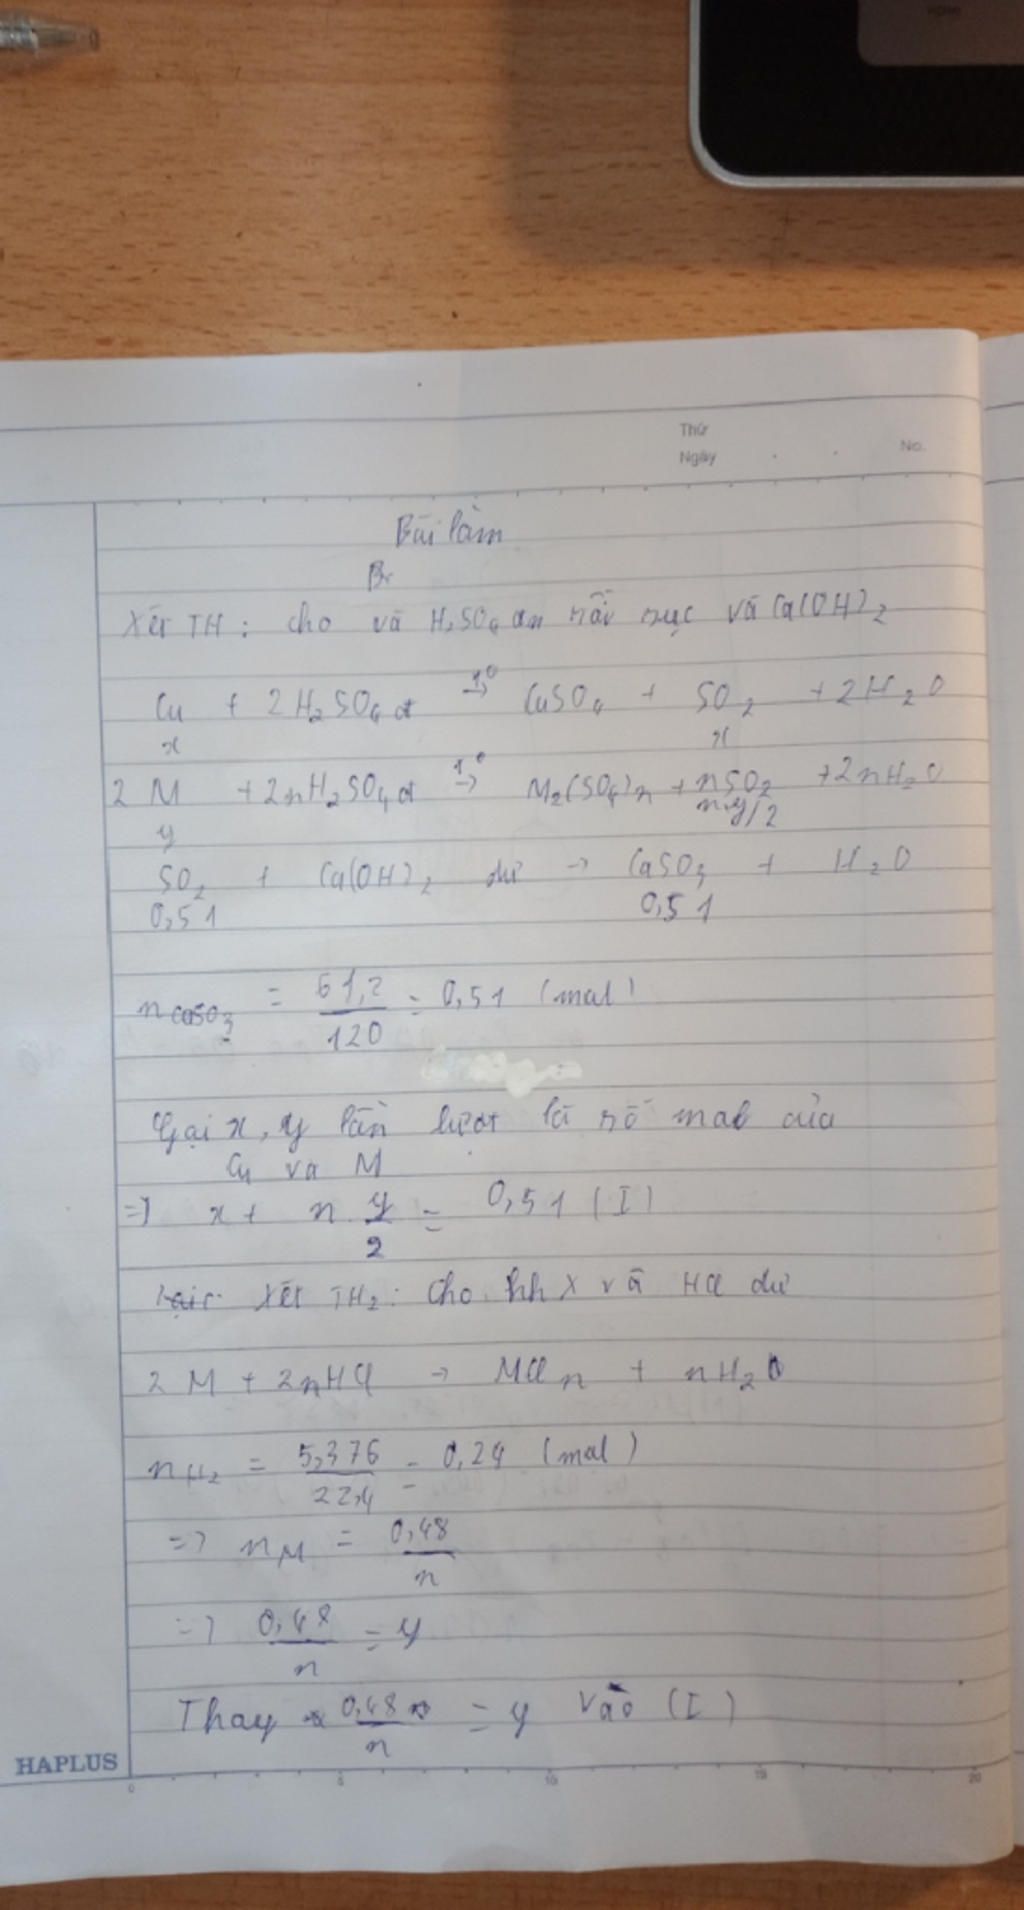 Thứ
Ngày
No.
Bài làm
Br
Xét TH: cho và H₂SO₄ vục và Ca(OH)₂
Cu + 2H₂SO₄ đ t° → CuSO₄ + SO₂ + 2H₂O
x x
2M + 2nH₂SO₄ đ t° → M₂(SO₄)n + nSO₂ + 2nH₂O
y n.y/2
SO₂ + Ca(OH)₂ dư → CaSO₃ + H₂O
0,51 0,51
nCaSO₃ = 61,2/120 = 0,51 (mol)
Gọi x, y lần lượt là số mol của
Cu và M
=> x + n.y/2 = 0,51 (I)
Xét TH₂: Cho hh X và HCl dư
2M + 2nHCl → MCln + nH₂O
nH₂ = 5,376/22,4 = 0,24 (mol)
=> nM = 0,48/n
=> 0,48/n = y
Thay 0,48/n = y vào (I)
HAPLUS
0 5 10 15 20